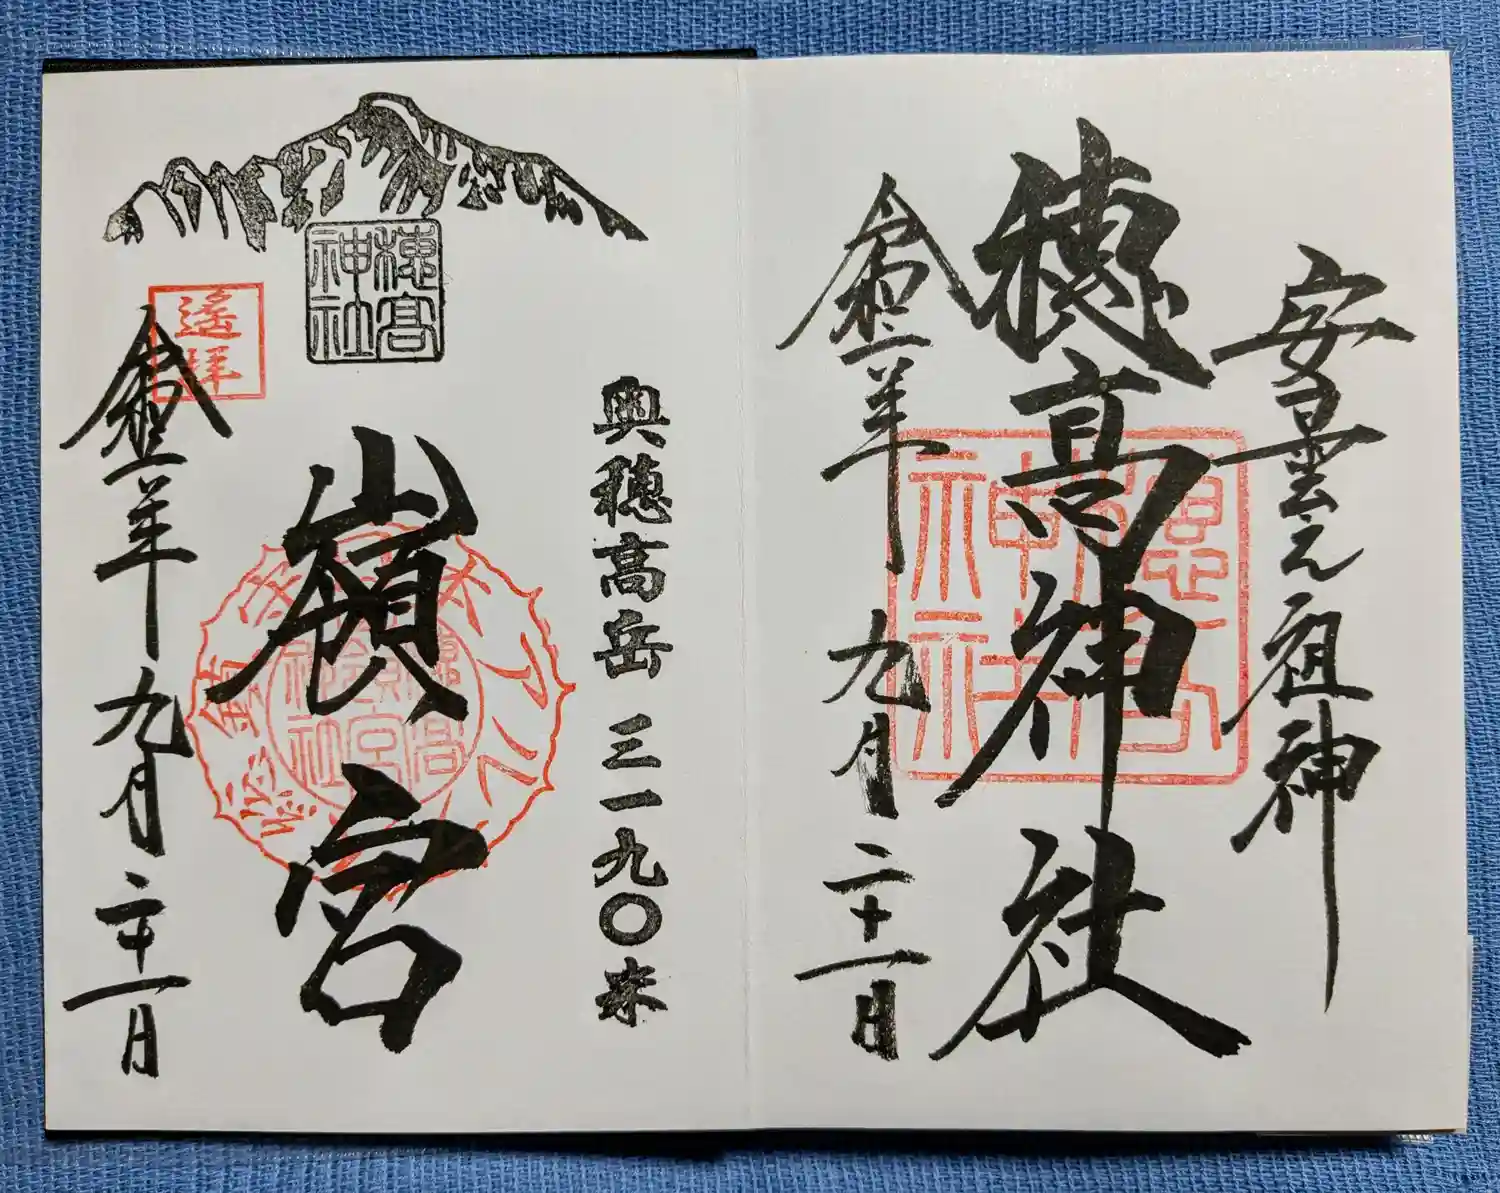 安曇之祖神
穂高神社
穂高神社
令和二年 九月二十一日
奥穂高岳 三一九〇米
穂高
神社
嶺宮
遙拝
令和二年 九月二十一日